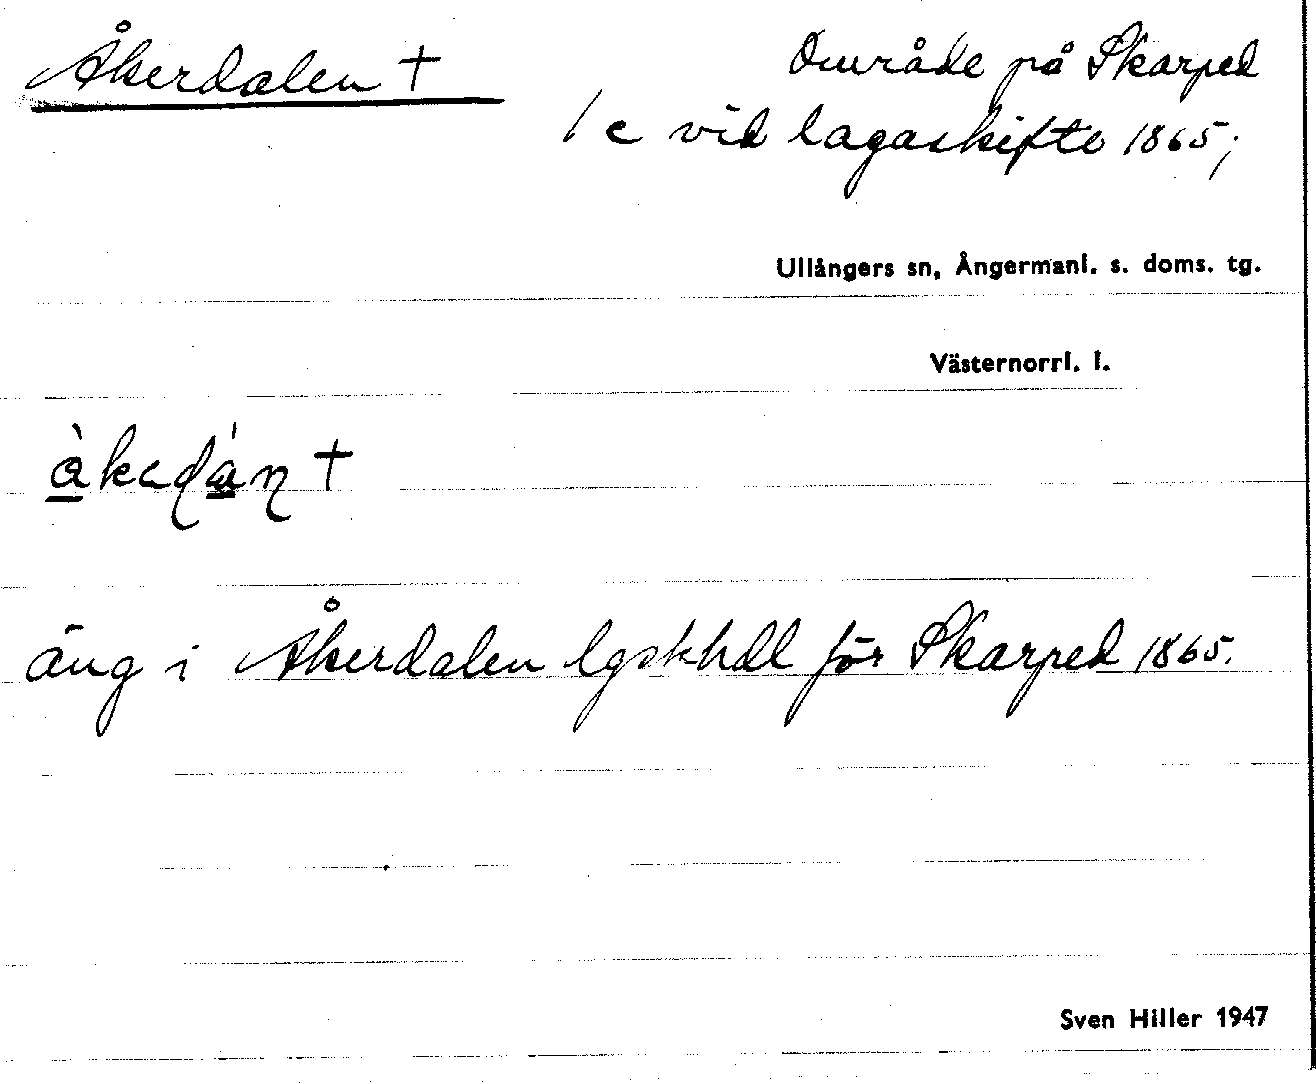 Åkerdalen †
Område på Skarped
1c vid lagaskifte 1865;
Ullångers sn, Ångermanl. s. doms. tg.
Västernorrl. l.
†
äng i Åkerdalen lgskhdl för Skarped 1865.
Sven Hiller 1947